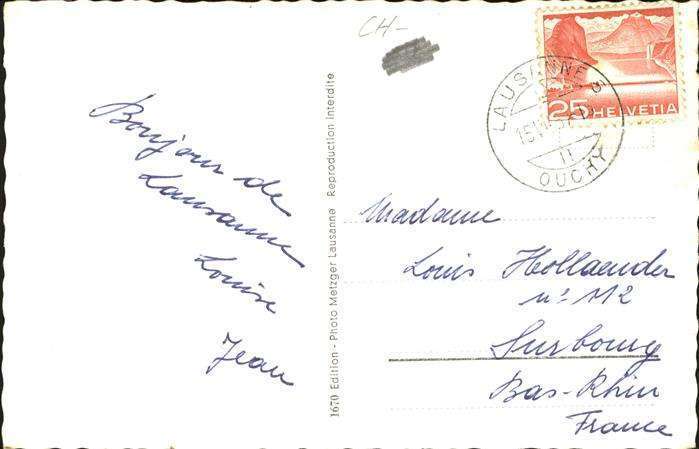 CH-
25
HELVETIA
LAUSANNE 3
OUCHY
Bonjour de
Lausanne
Louise
Jean
1670 Edition - Photo Metzger Lausanne Reproduction interdite
Madame
Louis Hollaender
n° 112
Surbourg
Bas-Rhin
France